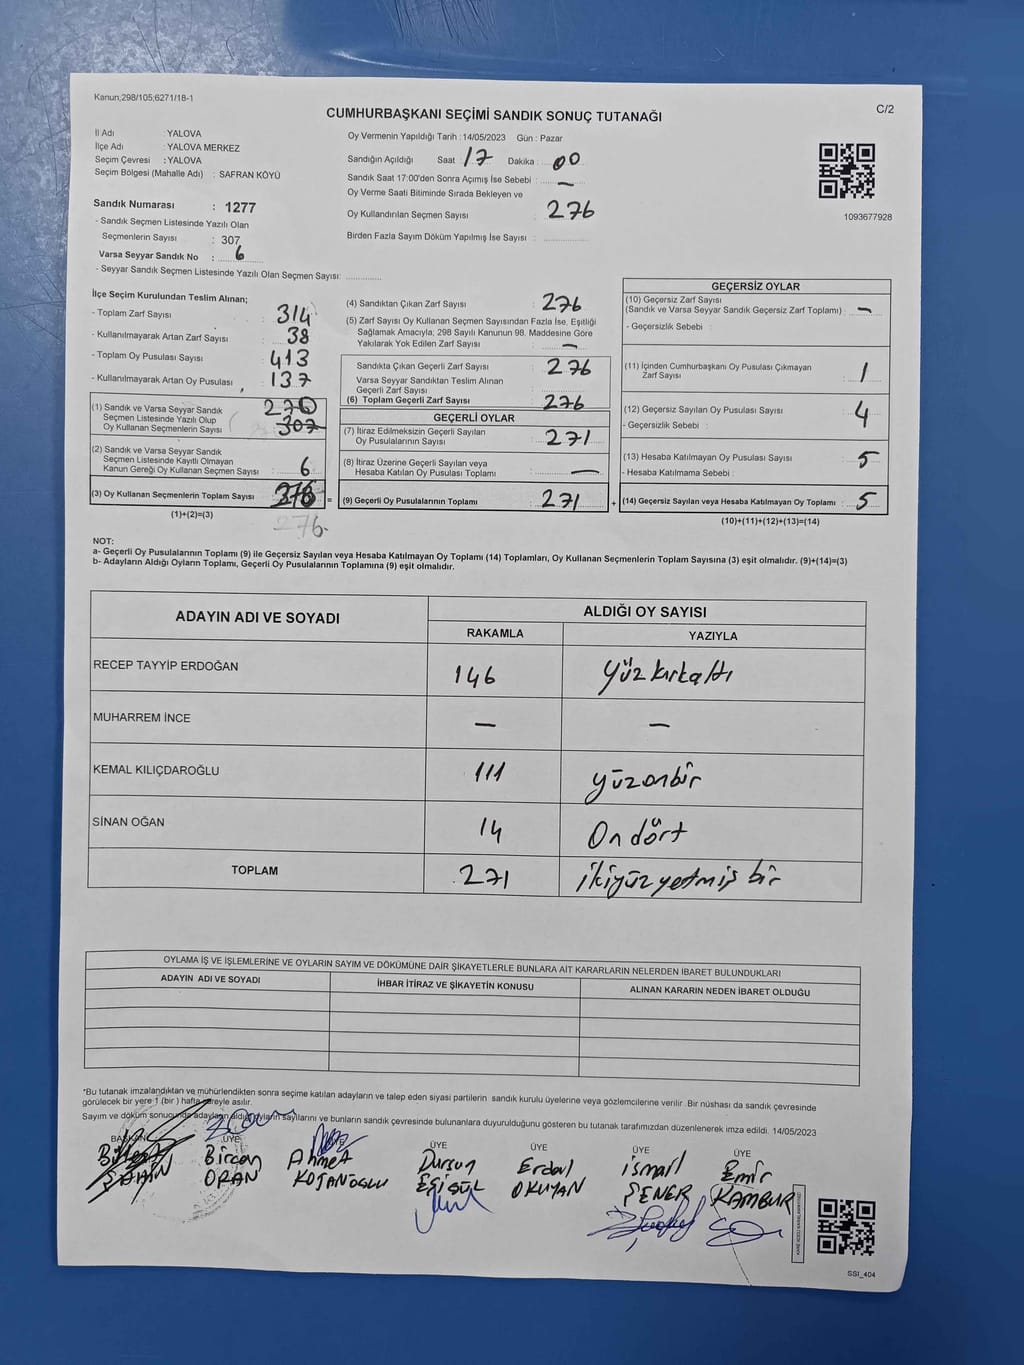 Kanun,298/105;6271/18-1
C/2
CUMHURBAŞKANI SEÇİMİ SANDIK SONUÇ TUTANAĞI
İl Adı : YALOVA
İlçe Adı : YALOVA MERKEZ
Seçim Çevresi : YALOVA
Seçim Bölgesi (Mahalle Adı) : SAFRAN KÖYÜ
Sandık Numarası : 1277
- Sandık Seçmen Listesinde Yazılı Olan
Seçmenlerin Sayısı : 307
Varsa Seyyar Sandık No : 6
- Seyyar Sandık Seçmen Listesinde Yazılı Olan Seçmen Sayısı:
Oy Vermenin Yapıldığı Tarih : 14/05/2023 Gün : Pazar
Sandığın Açıldığı Saat : 17 Dakika : 00
Sandık Saat 17:00'den Sonra Açımış İse Sebebi : —
Oy Verme Saati Bitiminde Sırada Bekleyen ve
Oy Kullandırılan Seçmen Sayısı 276
Birden Fazla Sayım Döküm Yapılmış İse Sayısı :
1093677928
İlçe Seçim Kurulundan Teslim Alınan;
- Toplam Zarf Sayısı : 314
- Kullanılmayarak Artan Zarf Sayısı : 38
- Toplam Oy Pusulası Sayısı : 413
- Kullanılmayarak Artan Oy Pusulası : 137
(1) Sandık ve Varsa Seyyar Sandık
Seçmen Listesinde Yazılı Olup
Oy Kullanan Seçmenlerin Sayısı
270
307
(2) Sandık ve Varsa Seyyar Sandık
Seçmen Listesinde Kayıtlı Olmayan
Kanun Gereği Oy Kullanan Seçmen Sayısı : 6
(3) Oy Kullanan Seçmenlerin Toplam Sayısı : 376 =
(1)+(2)=(3)
276
(4) Sandıktan Çıkan Zarf Sayısı : 276
(5) Zarf Sayısı Oy Kullanan Seçmen Sayısından Fazla İse, Eşitliği
Sağlamak Amacıyla, 298 Sayılı Kanunun 98. Maddesine Göre
Yakılarak Yok Edilen Zarf Sayısı : —
Sandıkta Çıkan Geçerli Zarf Sayısı : 276
Varsa Seyyar Sandıktan Teslim Alınan
Geçerli Zarf Sayısı :
(6) Toplam Geçerli Zarf Sayısı : 276
GEÇERLİ OYLAR
(7) İtiraz Edilmeksizin Geçerli Sayılan
Oy Pusulalarının Sayısı : 271
(8) İtiraz Üzerine Geçerli Sayılan veya
Hesaba Katılan Oy Pusulası Toplamı : —
(9) Geçerli Oy Pusulalarının Toplamı : 271 +
GEÇERSİZ OYLAR
(10) Geçersiz Zarf Sayısı
(Sandık ve Varsa Seyyar Sandık Geçersiz Zarf Toplamı) : —
- Geçersizlik Sebebi :
(11) İçinden Cumhurbaşkanı Oy Pusulası Çıkmayan
Zarf Sayısı : 1
(12) Geçersiz Sayılan Oy Pusulası Sayısı : 4
- Geçersizlik Sebebi :
(13) Hesaba Katılmayan Oy Pusulası Sayısı : 5
- Hesaba Katılmama Sebebi :
(14) Geçersiz Sayılan veya Hesaba Katılmayan Oy Toplamı : 5
(10)+(11)+(12)+(13)=(14)
NOT:
a- Geçerli Oy Pusulalarının Toplamı (9) ile Geçersiz Sayılan veya Hesaba Katılmayan Oy Toplamı (14) Toplamları, Oy Kullanan Seçmenlerin Toplam Sayısına (3) eşit olmalıdır. (9)+(14)=(3)
b- Adayların Aldığı Oyların Toplamı, Geçerli Oy Pusulalarının Toplamına (9) eşit olmalıdır.
ADAYIN ADI VE SOYADI
ALDIĞI OY SAYISI
RAKAMLA YAZIYLA
RECEP TAYYİP ERDOĞAN 146 Yüzkırkaltı
MUHARREM İNCE — —
KEMAL KILIÇDAROĞLU 111 yüzonbir
SİNAN OĞAN 14 On dört
TOPLAM 271 ikiyüzyetmiş bir
OYLAMA İŞ VE İŞLEMLERİNE VE OYLARIN SAYIM VE DÖKÜMÜNE DAİR ŞİKAYETLERLE BUNLARA AİT KARARLARIN NELERDEN İBARET BULUNDUKLARI
ADAYIN ADI VE SOYADI İHBAR İTİRAZ VE ŞİKAYETİN KONUSU ALINAN KARARIN NEDEN İBARET OLDUĞU
*Bu tutanak imzalandıktan ve mühürlendikten sonra seçime katılan adayların ve talep eden siyasi partilerin sandık kurulu üyelerine veya gözlemcilerine verilir. Bir nüshası da sandık çevresinde
görülecek bir yere 1 (bir ) hafta süreyle asılır.
Sayım ve döküm sonucunda adayların aldığı oyların sayılarını ve bunların sandık çevresinde bulunanlara duyurulduğunu gösteren bu tutanak tarafımızdan düzenlenerek imza edildi. 14/05/2023
BAŞKAN ÜYE ÜYE ÜYE ÜYE ÜYE
Bülent Bircan Ahmet Dursun Erdal ismail Emir
ŞAHİN ORAN KOJANOĞLU EŞİGÜL OKUYAN ŞENER KAMBUR
SSI_404